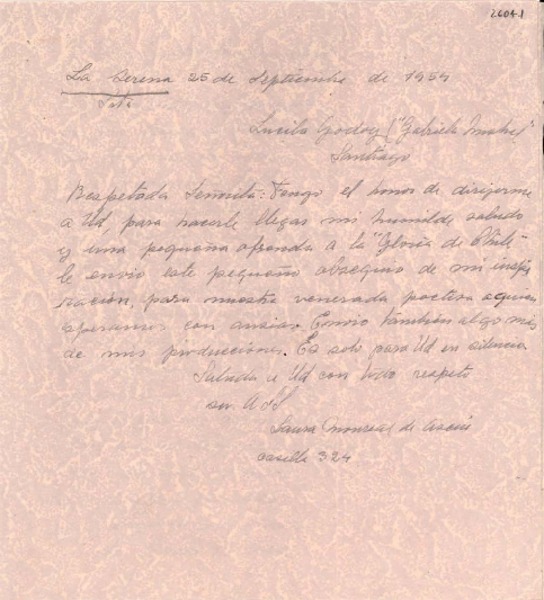 26041
La Serena 25 de Septiembre de 1954
Lucila Godoy ("Gabriela Mistral")
Santiago
Respetada Señorita: Tengo el honor de dirigirme
a Ud, para hacerle llegar mi humilde saludo
y una pequeña ofrenda a la "Gloria de Chile"
le envio este pequeño obsequio de mi inspi
ración, para nuestra venerada poetisa a quien
esperamos con ansias. Envio también algo más
de mis producciones. Es solo para Ud en silencio
Saluda a Ud con todo respeto
su
Laura Monreal de
casilla 324